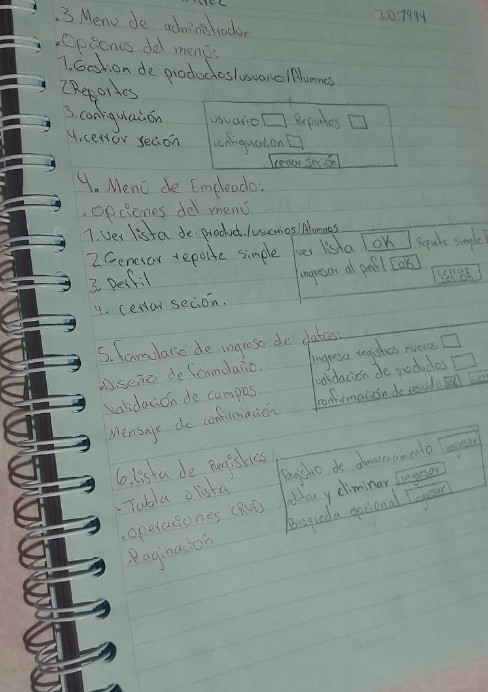 .3 Menu de administrador
.Opciones del menú:
1.Gestion de productos/usuario/Alumnos
2 Reportes
3. configuración
4. cerrar seción
usuario Reportes
configuration
cerrar seción
4. Menú de Empleado:
.opciones del menú
1. ver lista de product./usuarios/Alumnos
2 Generar reporte simple
3. perfil
4. cerrar seción.
ver lista OK Reporte simple
ingresar al perfil OK
cerrar seción
5. formulario de ingreso de datos:
.Diseño de formulario.
Validación de campos.
Mensaje de confirmación
ingresa registros nuevos
validación de productos
confirmación de
6. lista de Registros
.Tabla o lista
.operaciones CRUD
.Paginación
Registro de ingresar
y eliminar ingresar
Busqueda opcional ingresar